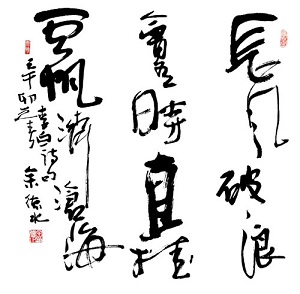 長風破浪
會有時直挂
雲帆濟滄海
李白詩句
余德水